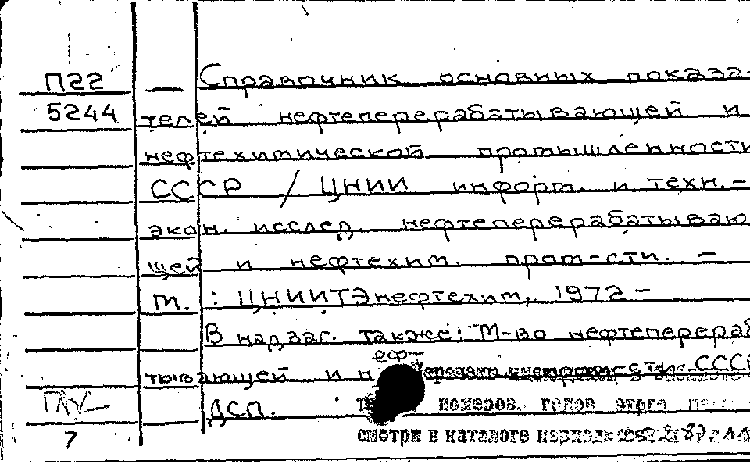 П22
5244
— Справочник основных показа-
телей нефтеперерабатывающей и
нефтехимической промышленности
СССР / ЦНИИ информ. и техн.-
экон. исслед. нефтеперерабатываю
щей и нефтехим. пром-сти. —
М.: ЦНИИТЭнефтехим, 1972 -
В надзаг. также: М-во нефтеперераб
тывающей и н СССР
ДСП. номеров, годов этого
смотри в каталоге
7